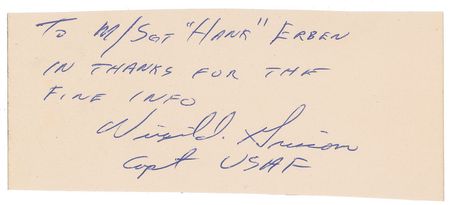 To M/Sgt "Hank" Erben
in thanks for the
fine info
Virgil I. Grissom
Capt USAF